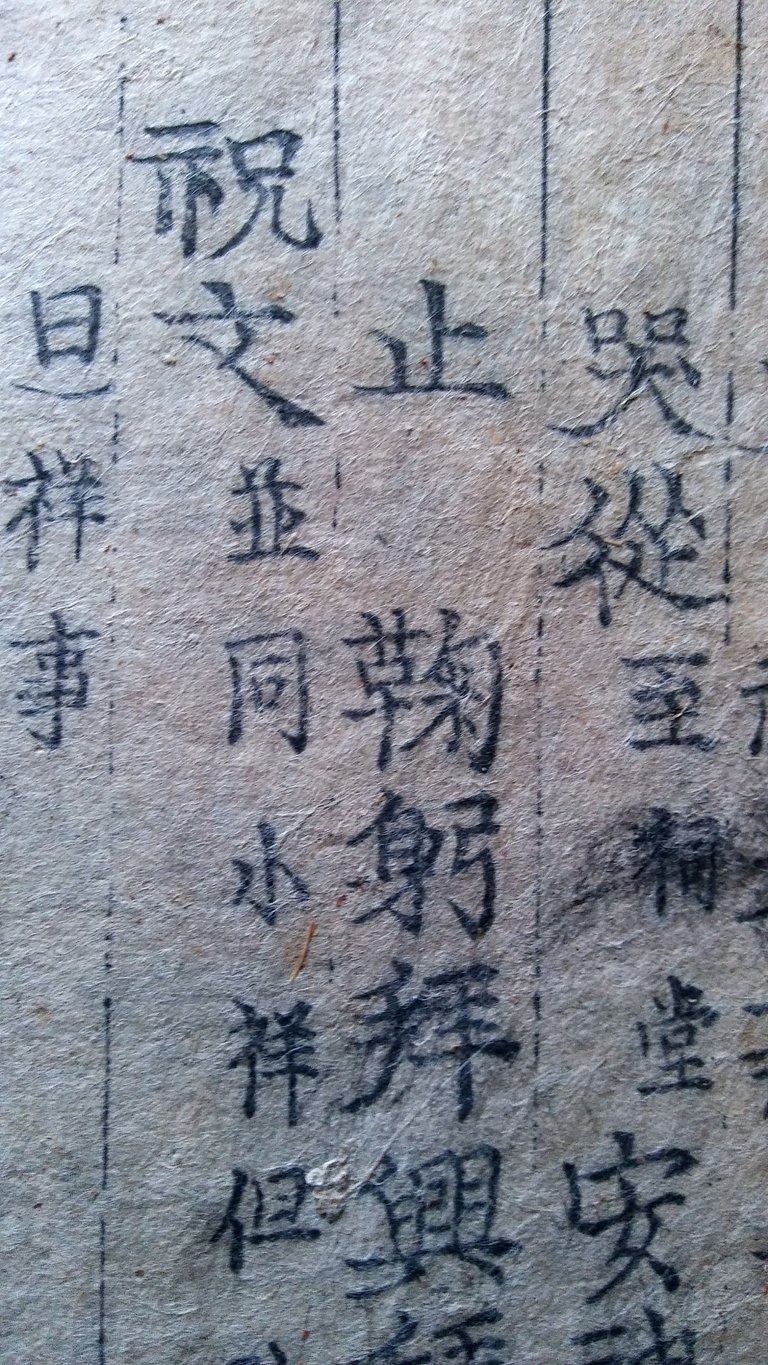 哭從至祠堂安神
止鞠躬拜興拜
祝文並同小祥但
日祥事